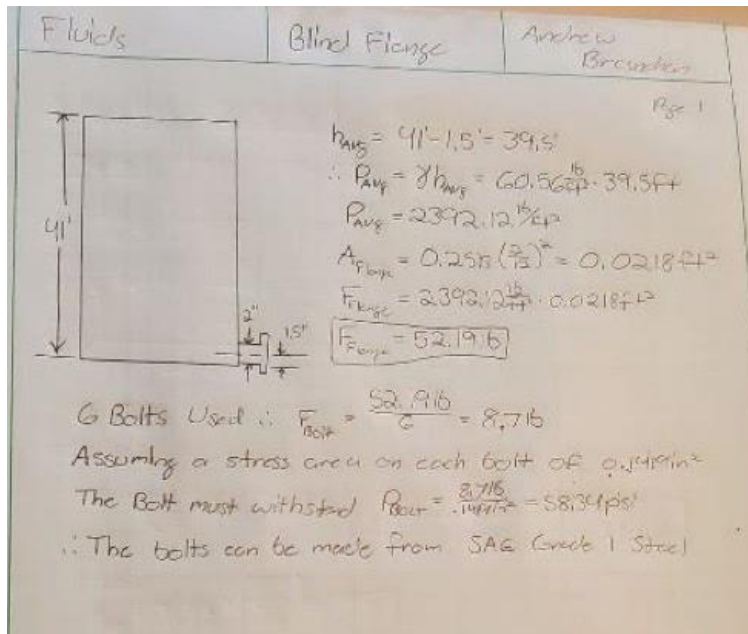 Fluids
Blind Flange
Andrew
Page 1
hAvg = 41'-1.5' = 39.5'
∴ PAvg = γhAvg = 60.56 lb/ft³ · 39.5ft
PAvg = 2392.12 lb/ft²
AFlange = 0.25π(2/12)² = 0.0218ft²
FFlange = 2392.12 lb/ft² · 0.0218ft²
FFlange = 52.19lb
41'
2"
1.5'
6 Bolts Used ∴ FBolt = 52.19lb/6 = 8.7lb
Assuming a stress area on each bolt of in²
The Bolt must withstand PBolt = 8.7lb/ in² = 58.34psi
∴ The bolts can be made from SAE Grade 1 Steel